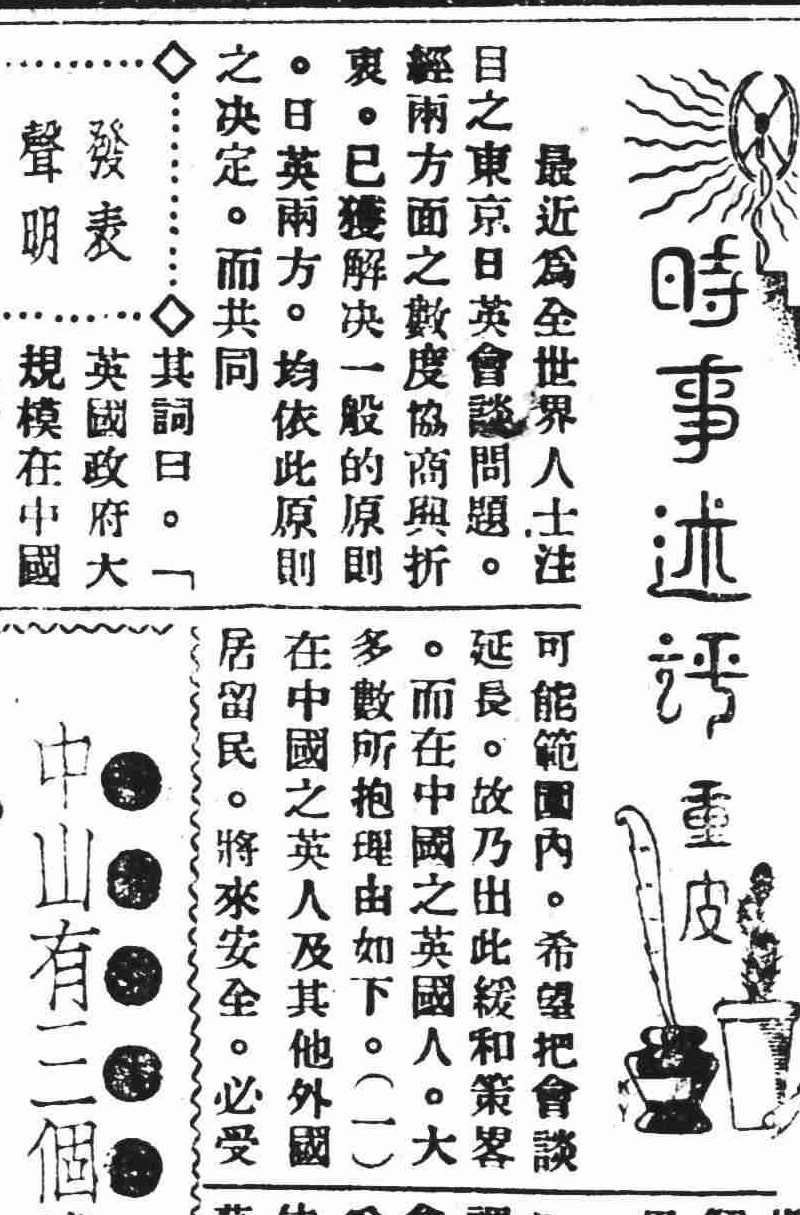 時事述評
重皮
最近爲全世界人士注
目之東京日英會談問題。
經兩方面之數度協商與折
衷。已獲解决一般的原則
。日英兩方。均依此原則
之决定。而共同
發表
聲明
其詞曰。「
英國政府大
規模在中國
可能範圍內。希望把會談
延長。故乃出此緩和策畧
。而在中國之英國人。大
多數所抱理由如下。(一)
在中國之英人及其他外國
居留民。將來安全。必受
中山有三個